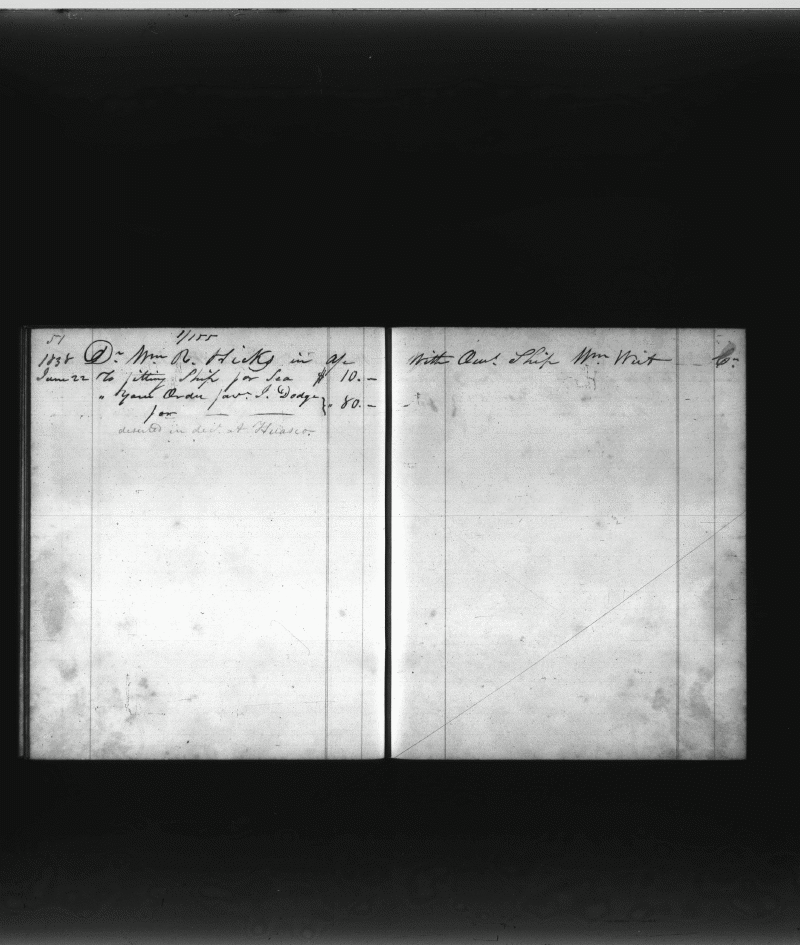 51
1/155
1838 Dr Wm R. Hicks in a/c
June 22 To fitting Ship for Sea $ 10.–
" Your Order favr. I. Dodge
for — — } " 80.–
deserted in debt at Huasco
With Own.s Ship Wm Wirt Cr